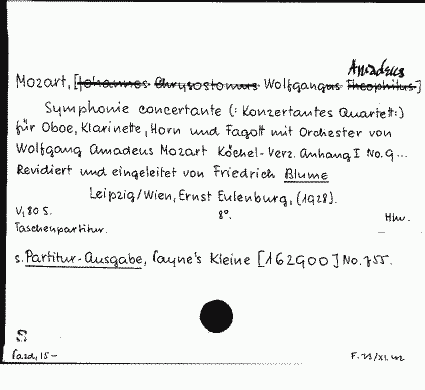 Amadeus
Mozart, [Johannes Chrysostomus Wolfgangus Theophilus]
Symphonie concertante (: Konzertantes Quartett:)
für Oboe, Klarinette, Horn und Fagott mit Orchester von
Wolfgang Amadeus Mozart Köchel-Verz. Anhang I No. 9 ...
Revidiert und eingeleitet von Friedrich Blume
Leipzig/Wien, Ernst Eulenburg, (1928).
V, 80 S. 8°. Hlw.
Taschenpartitur.
s. Partitur-Ausgabe, Payne's Kleine [162900] No. 755.
S
15-